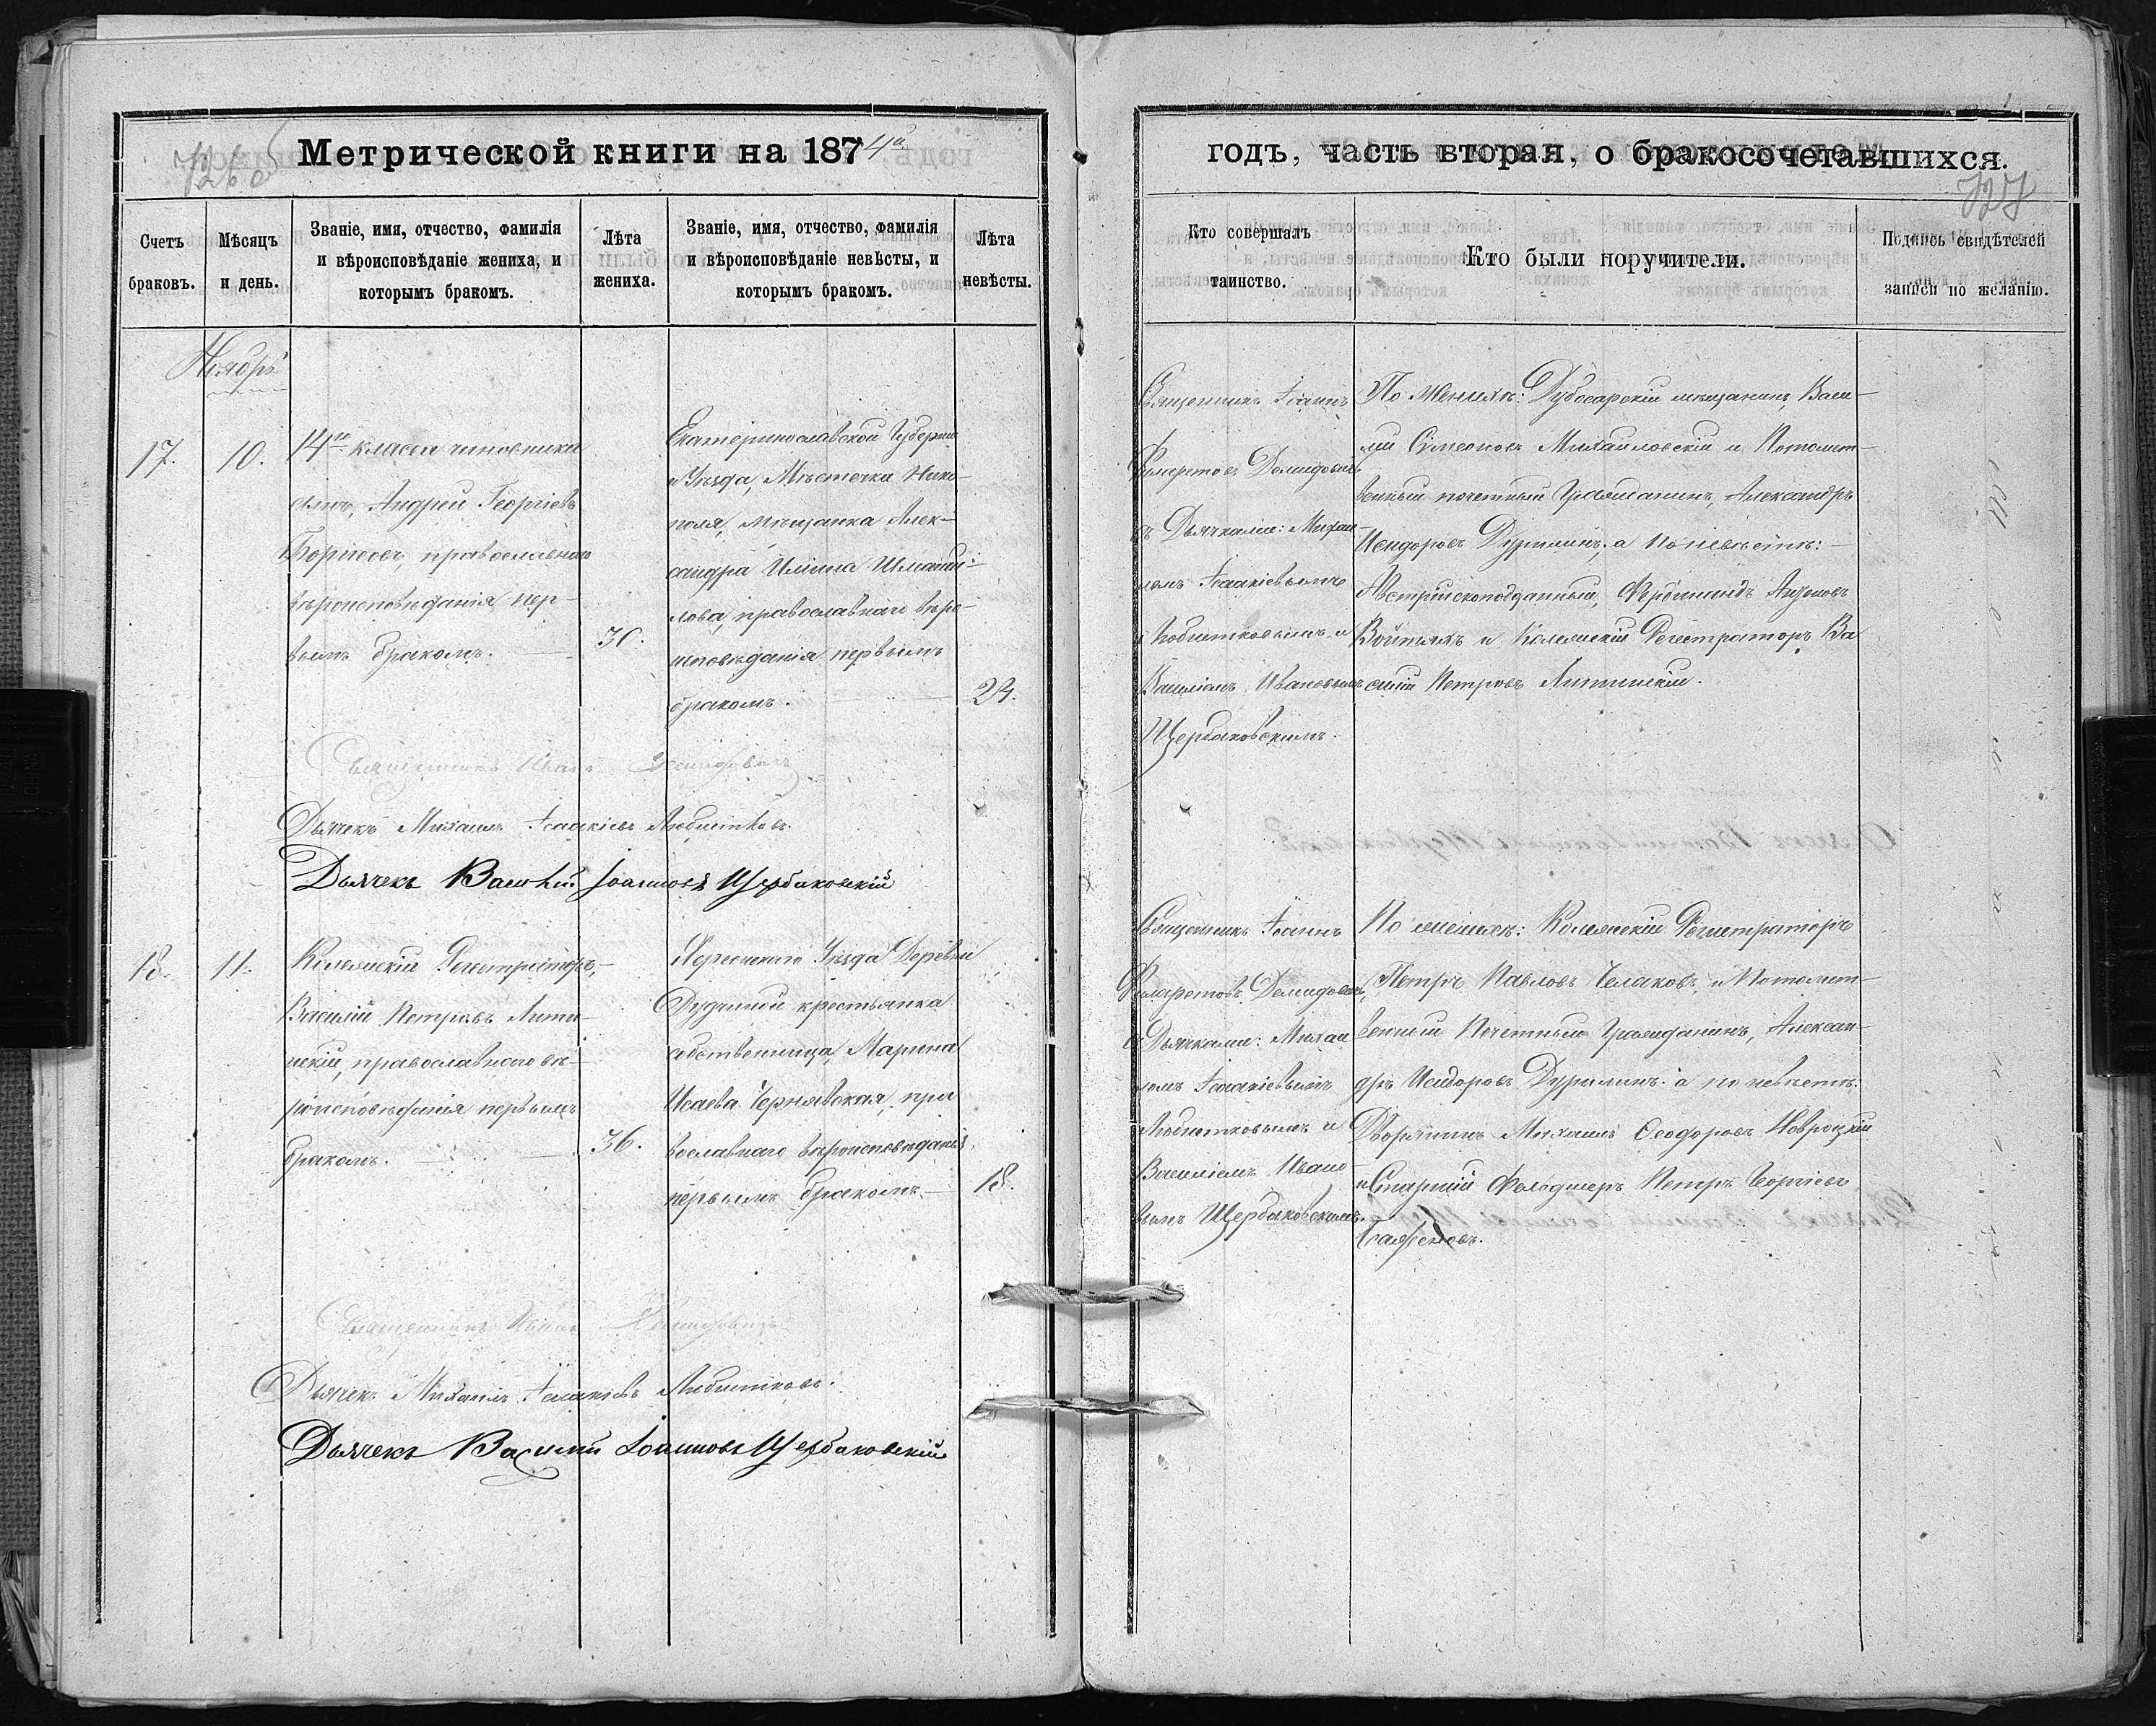 Метрической книги на 1874й
Счетъ
браковъ.
Мѣсяцъ
и день.
Званіе, имя, отчество, фамилія
и вѣроисповѣданіе жениха, и
которымъ бракомъ.
Лѣта
жениха.
Званіе, имя, отчество, фамилія
и вѣроисповѣданіе невѣсты, и
которымъ бракомъ.
Лѣта
невѣсты.
Ноябрь
17.
10.
14го класса чиновника
Андрей Георгіевъ
православнаго
вѣроисповѣданія пер-
вымъ бракомъ.
30.
Екатеринославской Губерніи
и Уѣзда, Мѣстечка Нико-
поля, мѣщанка Алек-
сандра Ильина
лова, православнаго вѣро-
исповѣданія первымъ
бракомъ.
24.
Священникъ Іоаннъ Демидовичъ
Дьячекъ Михаилъ Ісаакіевъ Любистковъ.
Дьячекъ Василій Іоанновъ Щербаковскій
18.
11.
Коллежскій Регистраторъ,
Василій Петровъ Лити-
нскій, православнаго вѣ-
роисповѣданія первымъ
бракомъ.
36.
Херсонскаго Уѣзда Деревни
Дудчиной крестьянка
собственница, Марина
Исаева Чернявская, пра
вославнаго вѣроисповѣданія
первымъ бракомъ.
18.
Священникъ Іоаннъ Демидовичъ
Дьячекъ Михаилъ Ісаакіевъ Любистковъ.
Дьячекъ Василій Іоанновъ Щербаковскій
годъ, часть вторая, о бракосочетавшихся.
727
Кто совершалъ
таинство.
Кто были поручители.
Подпись свидѣтелей
записи по желанію.
Священникъ Іоаннъ
Филаретовъ Демидовичъ
съ Дьячками: Михаи-
ломъ Ісаакіевымъ
Любистковымъ и
Василіемъ Ивановымъ
Щербаковскимъ.
По женихѣ: Дубосарскій мѣщанинъ, Васи-
лій Симеоновъ Михайловскій и Потомст-
венный почетный Гражданинъ, Александръ
Исидоровъ Дурилинъ; а по невѣстѣ:
Австрійскоподданный, Фердинандъ Антоновъ
Войтѣхъ и Коллежскій Регистраторъ Ва
силій Петровъ Литинскій.
Священникъ Іоаннъ
Филаретовъ Демидовичъ,
съ Дьячками: Михаи
ломъ Ісаакіевымъ
Любистковымъ и
Василіемъ Ивано-
вымъ Щербаковскимъ.
По женихѣ: Коллежскій Регистраторъ
Петръ Павловъ Челаковъ, и Потомст-
венный Почетный Гражданинъ, Алексан-
дръ Исидоровъ Дурилинъ: а по невѣстѣ:
Дворянинъ Михаилъ Ѳеодоровъ Навроцкій
и Старшій Фельдшеръ Петръ Георгіевъ